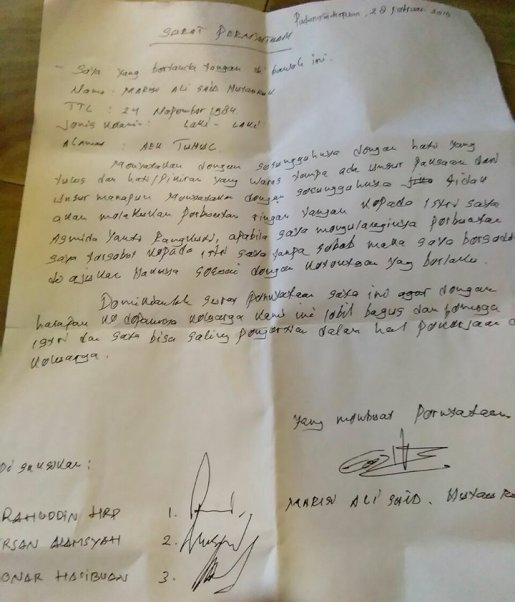 Padangsidimpuan, 28 Februari 2016
SURAT PERNYATAAN
- Saya yang bertanda tangan di bawah ini.
Nama : MARISI ALI SAID
TTL : 24 Nopember 1984
Jenis Kelamin : LAKI - LAKI
Alamat : AEK TUHUL
Menyatakan dengan sesungguhnya dengan hati yang
tulus dan hati/pikiran yang waras tanpa ada unsur paksaan dari
unsur manapun Menyatakan dengan sesungguhnya tidak
akan melakukan perbuatan ringan tangan kepada istri saya
Asmida Yanti, apabila saya mengulanginya perbuatan
saya tersebut kepada istri saya tanpa sebab maka saya bersedia
di ajukan sesuai dengan yang berlaku.
Demikianlah surat pernyataan saya ini agar dengan
harapan ke depannya keluarga kami ini lebih bagus dan semoga
istri dan saya bisa saling pengertian dalam hal pekerjaan
keluarga.
Yang membuat Pernyataan
Di saksikan :
MARISI ALI SAID.
RAHUDDIN HRP 1.
IRSAN ALAMSYAH 2.
ONAR HASIBUAN 3.